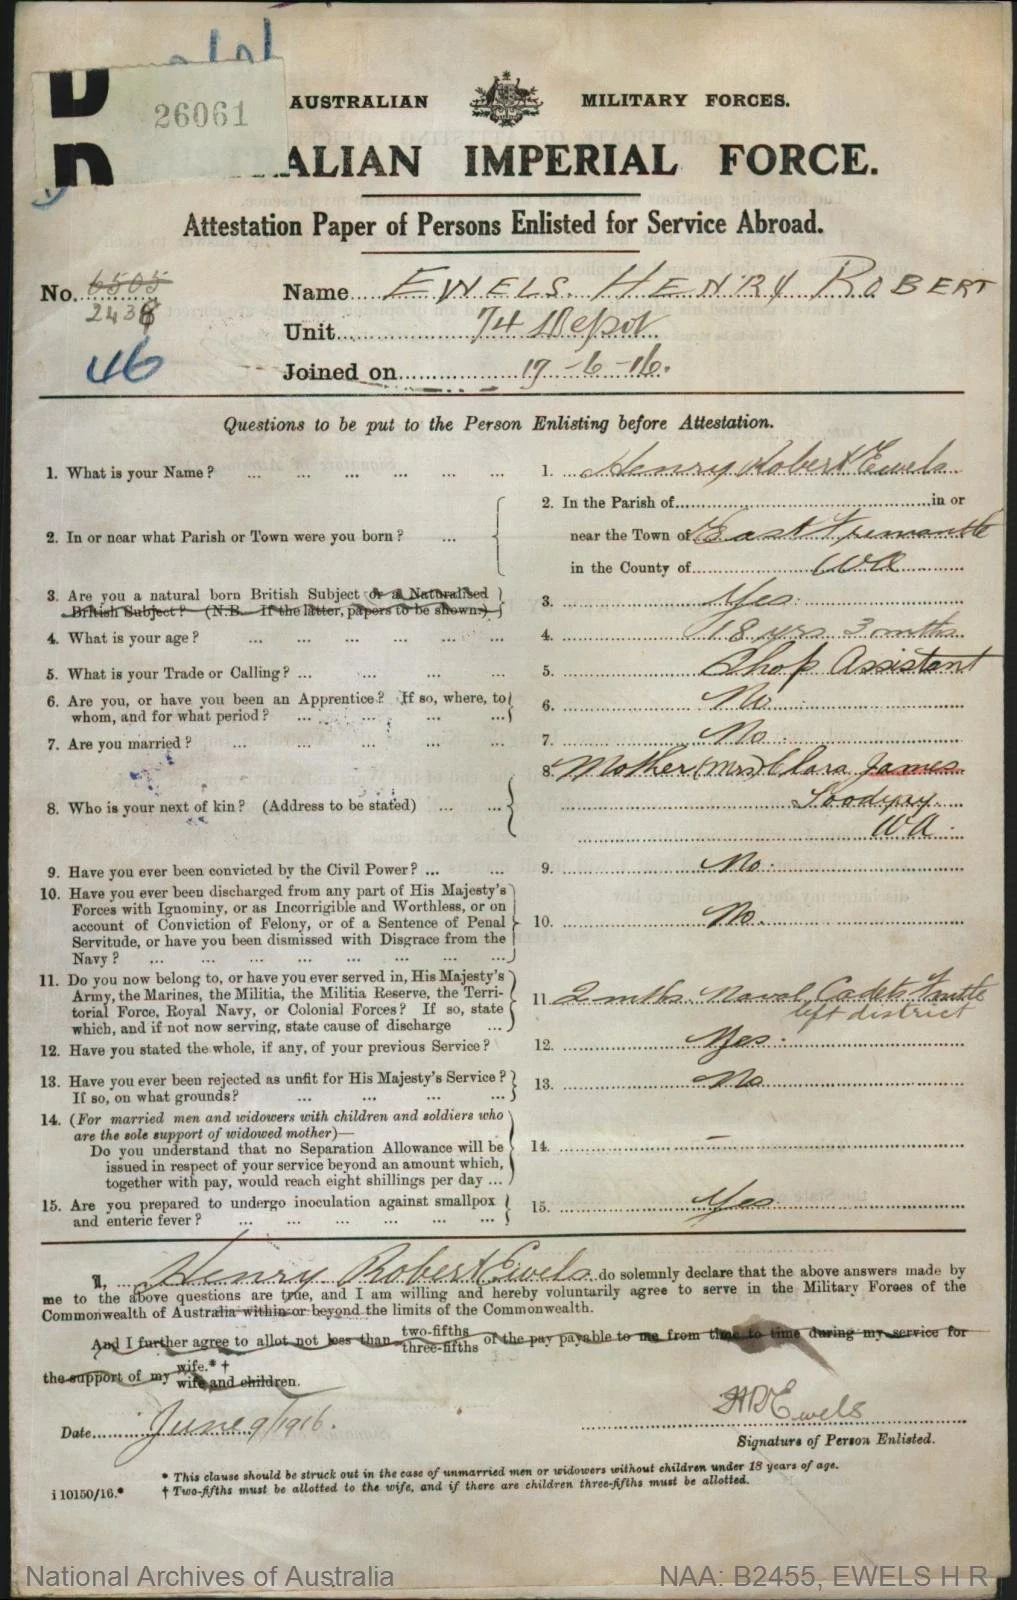 26061
AUSTRALIAN MILITARY FORCES.
ALIAN IMPERIAL FORCE.
Attestation Paper of Persons Enlisted for Service Abroad.
No. 6505 Name EWELS. HENRY ROBERT
2438 Unit 74 Depot
46 Joined on 19-6-16.
Questions to be put to the Person Enlisting before Attestation.
1. What is your Name? ... ... ... ... ... ... 1. Henry Robert Ewels
2. In or near what Parish or Town were you born? ... 2. In the Parish of in or
near the Town of East Fremantle
in the County of WA
3. Are you a natural born British Subject or a Naturalised
British Subject? (N.B. If the latter, papers to be shown.) 3. Yes.
4. What is your age? ... ... ... ... ... ... 4. 18 yrs 3 mths
5. What is your Trade or Calling? ... ... ... ... 5. Shop Assistant
6. Are you, or have you been an Apprentice? If so, where, to
whom, and for what period? ... ... ... ... 6. No
7. Are you married? ... ... ... ... ... 7. No.
8. Who is your next of kin? (Address to be stated) ... ... 8. Mother (Mrs) Clara James
WA.
9. Have you ever been convicted by the Civil Power? ... ... 9. No.
10. Have you ever been discharged from any part of His Majesty's
Forces with Ignominy, or as Incorrigible and Worthless, or on
account of Conviction of Felony, or of a Sentence of Penal
Servitude, or have you been dismissed with Disgrace from the
Navy? ... ... ... ... ... ... ... ... 10. No.
11. Do you now belong to, or have you ever served in, His Majesty's
Army, the Marines, the Militia, the Militia Reserve, the Terri-
torial Force, Royal Navy, or Colonial Forces? If so, state
which, and if not now serving, state cause of discharge ... 11 2 mths Naval Cadets F'mtle
left district
12. Have you stated the whole, if any, of your previous Service? 12. Yes.
13. Have you ever been rejected as unfit for His Majesty's Service?
If so, on what grounds? ... ... ... ... 13. No
14. (For married men and widowers with children and soldiers who
are the sole support of widowed mother)—
Do you understand that no Separation Allowance will be
issued in respect of your service beyond an amount which,
together with pay, would reach eight shillings per day ... 14. –
15. Are you prepared to undergo inoculation against smallpox
and enteric fever? ... ... ... ... ... ... 15. Yes
I, Henry Robert Ewels do solemnly declare that the above answers made by
me to the above questions are true, and I am willing and hereby voluntarily agree to serve in the Military Forces of the
Commonwealth of Australia within or beyond the limits of the Commonwealth.
And I further agree to allot not less than two-fifths three-fifths of the pay payable to me from time to time during my service for
the support of my wife.* † wife and children.
HREwels
Date June 9/1916.
Signature of Person Enlisted.
* This clause should be struck out in the case of unmarried men or widowers without children under 18 years of age.
i 10150/16.* † Two-fifths must be allotted to the wife, and if there are children three-fifths must be allotted.
National Archives of Australia NAA: B2455, EWELS H R